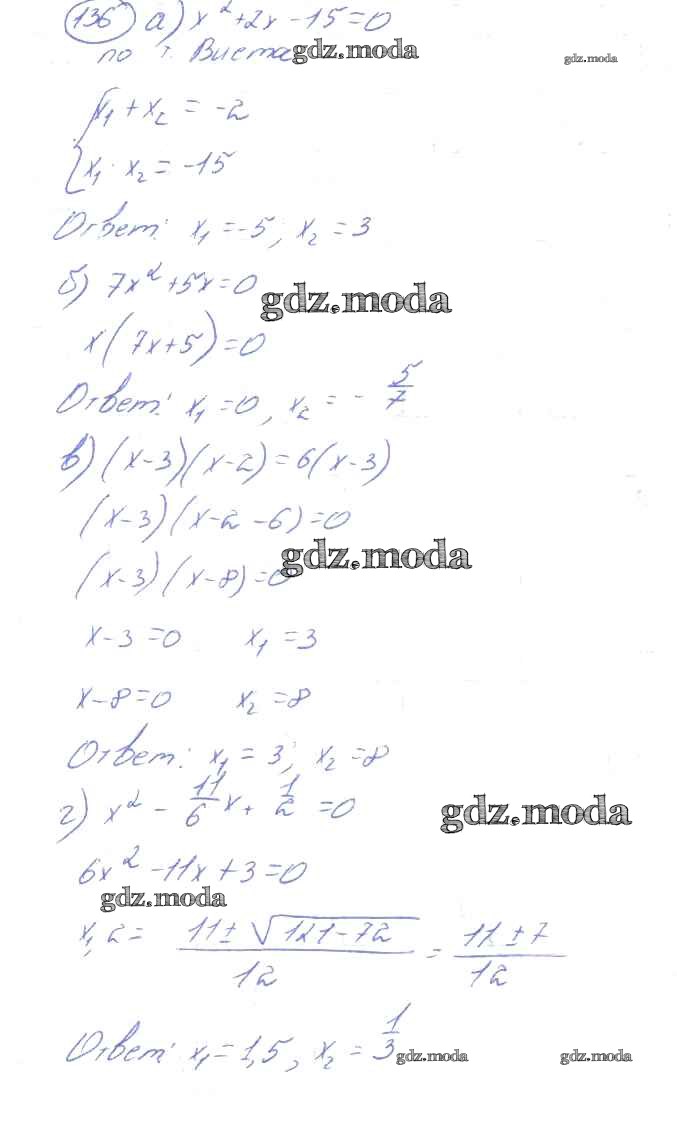 136 а) x² + 2x - 15 = 0
по т. Виета
gdz.moda
gdz.moda
{ x₁ + x₂ = -2
{ x₁ · x₂ = -15
Ответ: x₁ = -5; x₂ = 3
б) 7x² + 5x = 0
gdz.moda
x(7x+5) = 0
Ответ: x₁ = 0, x₂ = - 5/7
в) (x-3)(x-2) = 6(x-3)
(x-3)(x-2-6) = 0
gdz.moda
(x-3)(x-8) = 0
x-3 = 0 x₁ = 3
x-8 = 0 x₂ = 8
Ответ: x₁ = 3; x₂ = 8
г) x² - 11/6 x + 1/2 = 0
gdz.moda
6x² - 11x + 3 = 0
gdz.moda
x₁,₂ = (11 ± √(121-72))/12 = (11 ± 7)/12
Ответ: x₁ = 1,5, x₂ = 1/3
gdz.moda
gdz.moda